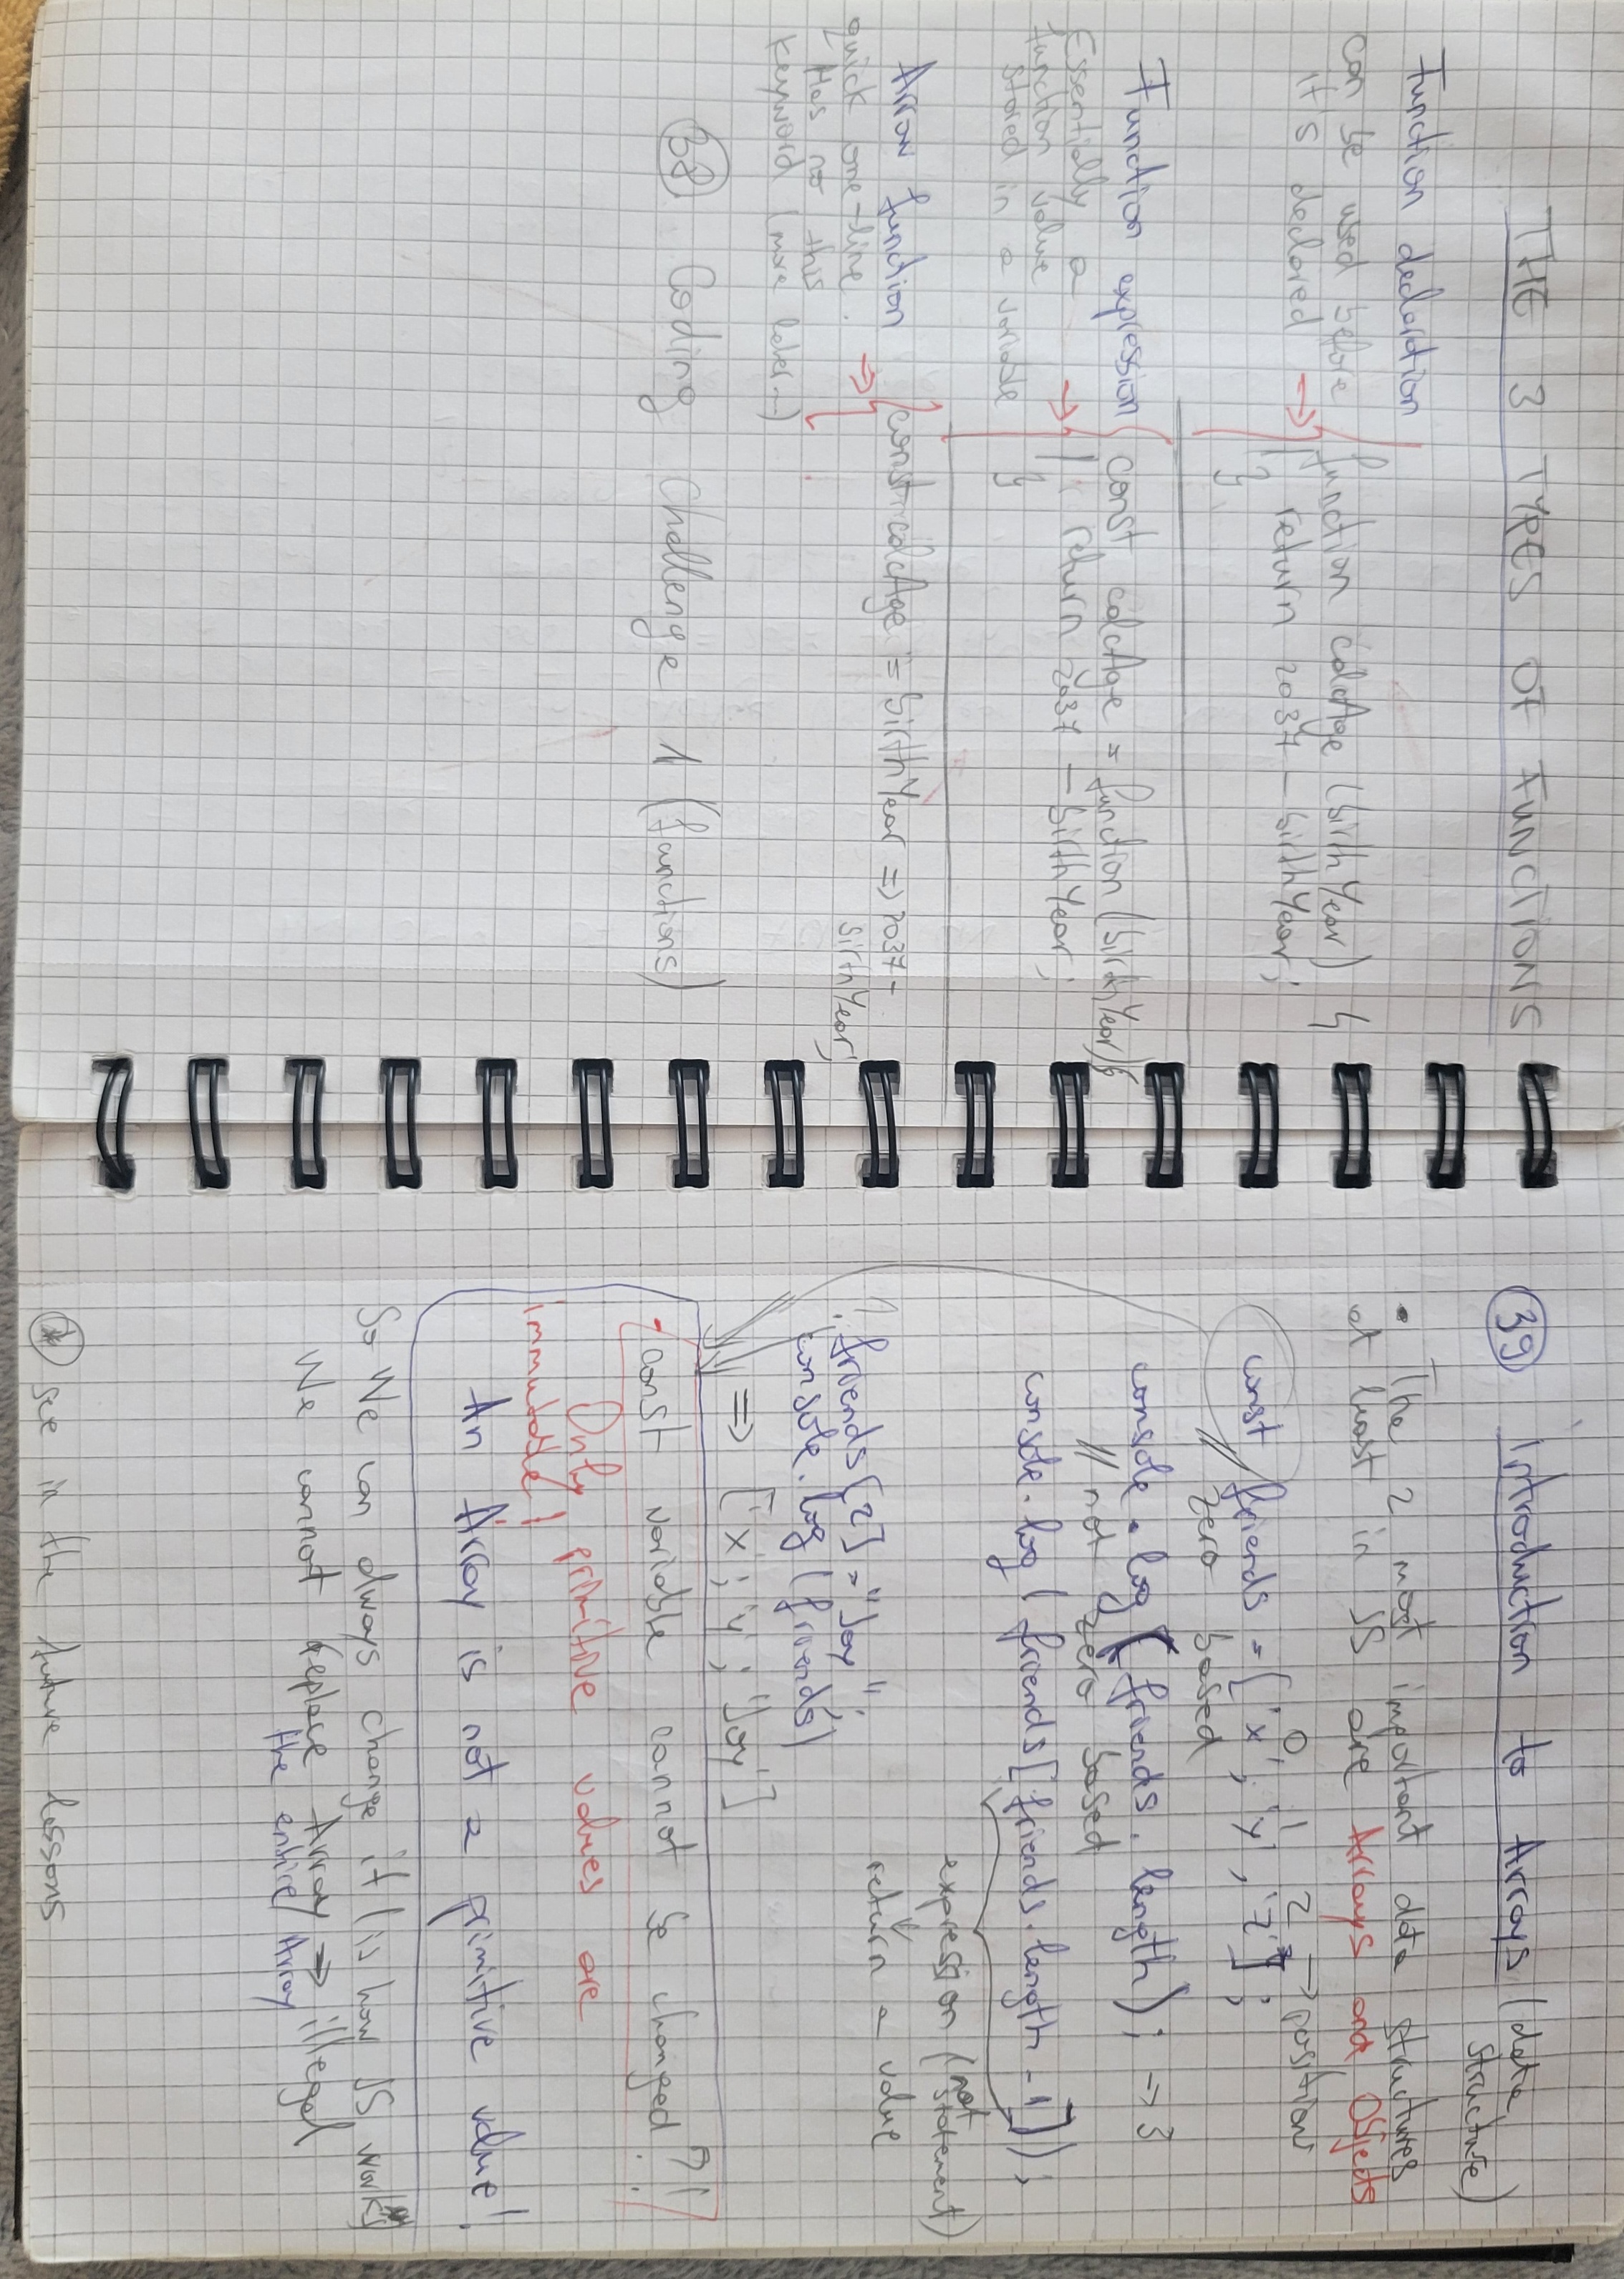 THE 3 TYPES OF FUNCTIONS
Function declaration
can be used before
it's declared →
function calcAge (birthYear) {
return 2037 - birthYear;
}
Function expression
Essentially a
function value
stored in a variable
→
const calcAge = function (birthYear) {
return 2037 - birthYear;
}
Arrow function
quick one-line.
Has no this
keyword (more later...)
→
const calcAge = birthYear => 2037 -
birthYear;
38 Coding Challenge 1 (functions)
39 Introduction to Arrays (data
structure)
• The 2 most important data structures
at least in JS are Arrays and Objects
0 1 2 → position
const friends = ['x', 'y', 'z'];
// zero based
console.log (friends.length); → 3
// not zero based
console.log (friends[friends.length -1]);
expression (not statement)
return a value
1. friends[2] = "Jay";
console.log (friends)
=> ['x'; 'y'; "Jay"]
- const variable cannot be changed ?!
Only primitive values are
immutable!
An Array is not a primitive value!
So We can always change it (is how JS works
We cannot replace Array => illegal
the entire Array
* see in the future lessons